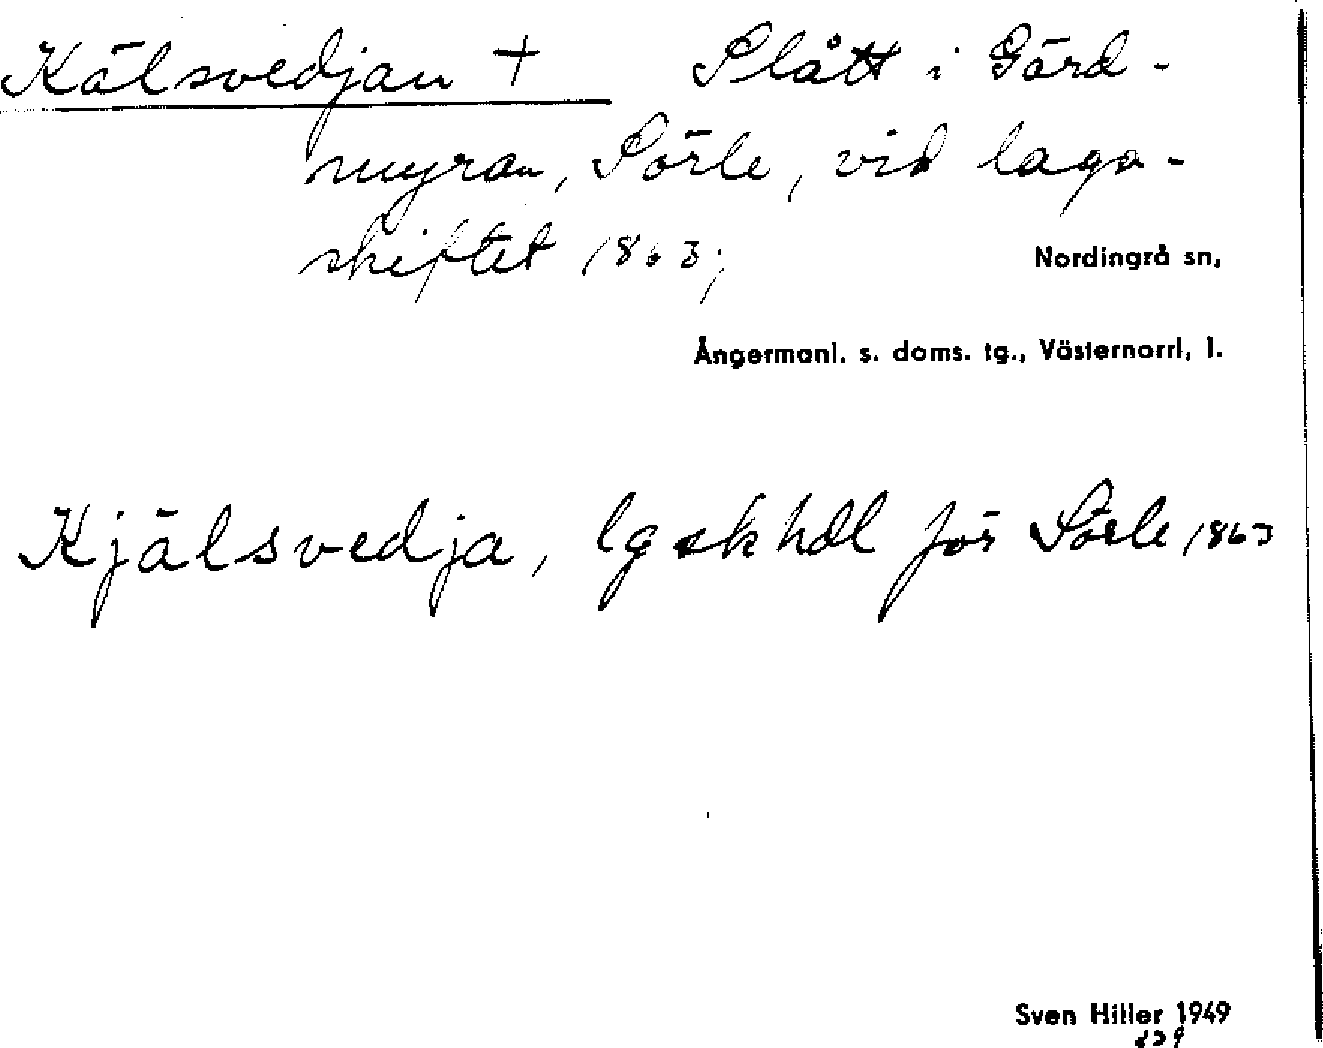 Kälsvedjan + Slått i Gärd-
myran, Sörle, vid laga-
skiftet 1863;
Nordingrå sn,
Ångermanl. s. doms. tg., Västernorrl. l.
Kjälsvedja, lgskhdl för Sörle 1863
Sven Hiller 1949
239